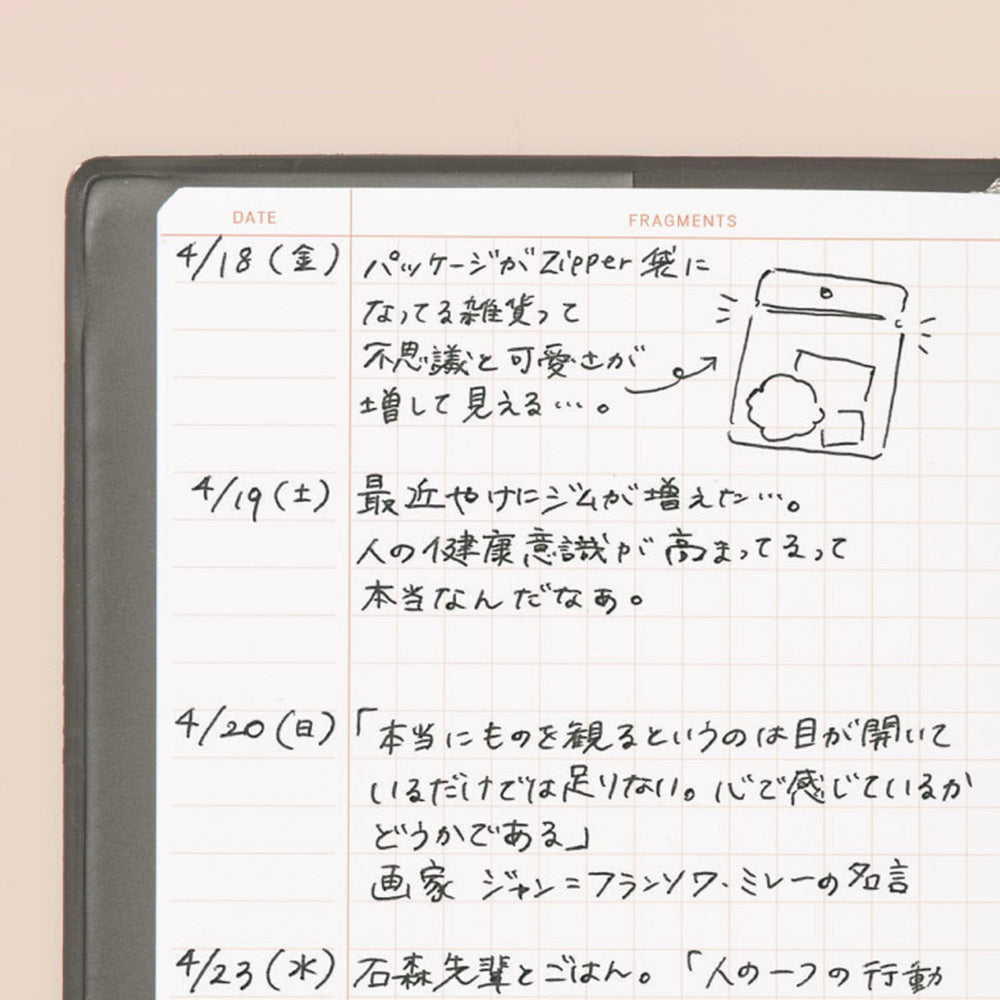 DATE FRAGMENTS
4/18(金) パッケージがZipper袋に
なってる雑貨って
不思議と可愛さが
増して見える…。
4/19(土) 最近やけにジムが増えた…。
人の健康意識が高まってるって
本当なんだなぁ。
4/20(日) 「本当にものを観るというのは目が開いて
いるだけでは足りない。心で感じているか
どうかである」
画家 ジャン=フランソワ・ミレーの名言
4/23(水) 石森先輩とごはん。「人の一つの行動